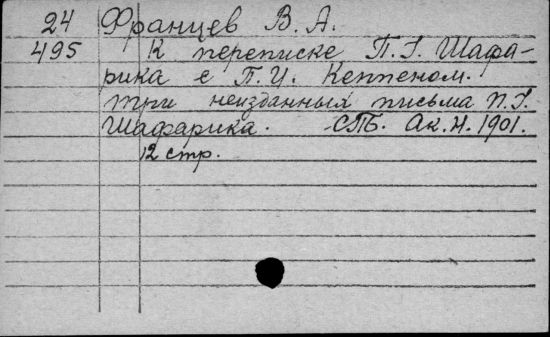 24 Францев В. А.
495 К переписке П. I. Шафа-
рика с П. И. Кеппеном.
три неизданных письма П. I.
Шафарика. СПБ. Ак. Н. 1901.
12 стр.